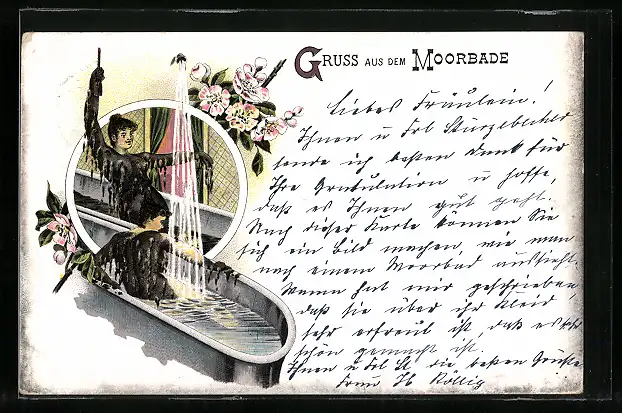 GRUSS AUS DEM MOORBADE
Liebes Fräulein!
Ihnen u Frl Sturzelbecher
sende ich besten Dank für
Ihre Gratulation u hoffe,
daß es Ihnen gut geht.
Nach dieser Karte können Sie
sich ein Bild machen, wie man
nach einem Moorbad aussieht.
Wenn hat mir geschrieben,
daß sie über ihr Kleid
sehr erfreut ist, daß es sehr
schön gemacht ist.
Ihnen u Frl St. die besten Grüße
Frau